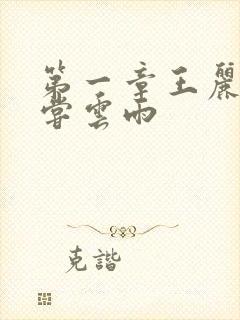 第一章王麗
嘗雲雨
克諧